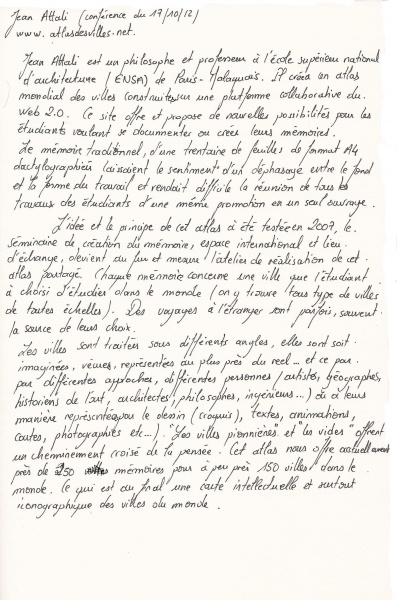 Jean Attali (conférence du 17/10/12)
www.atlasdesvilles.net.
Jean Attali est un philosophe et professeur à l'école supérieur national
d'architecture (ENSA) de Paris-Malaquais. Il créa un atlas
mondial des villes construites sur une platforme collaborative du
Web 2.0. Ce site offre et propose de nouvelles possibilités pour les
étudiants voulant se documenter ou créer leurs mémoires.
Le mémoire traditionnel, d'une trentaine de feuilles de format A4
dactylographiées laissaient le sentiment d'un déphasage entre le fond
et la forme du travail et rendait difficile la réunion de tous les
travaux des étudiants d'une même promotion en un seul ouvrage.
L'idée et le principe de cet atlas a été testée en 2007, le
séminaire de création du mémoire, espace international et lieu
d'échange, devient au fur et mesure l'atelier de réalisation de cet
atlas partagé. Chaque mémoire concerne une ville que l'étudiant
à choisi d'étudier dans le monde (on y trouve tous type de villes
de toutes échelles). Des voyages à l'étranger sont parfois, souvent
la source de leurs choix.
Les villes sont traitées sous différents angles, elles sont soit
imaginées, vécues, représentées au plus près du réel... et ce par
par différentes approches, différentes personnes (artistes, géographes,
historiens de l'art, architectes, philosophes, ingénieurs...) où à leurs
manière représentées par le dessin (croquis), textes, animations,
cartes, photographies etc...). "Les villes pionnières" et "les vides" offrent
un cheminement croisé de la pensée. Cet atlas nous offre actuellement
près de 250 mémoires pour à peu près 150 villes dans le
monde. Ce qui est au final une carte intellectuelle et surtout
iconographique des villes du monde.